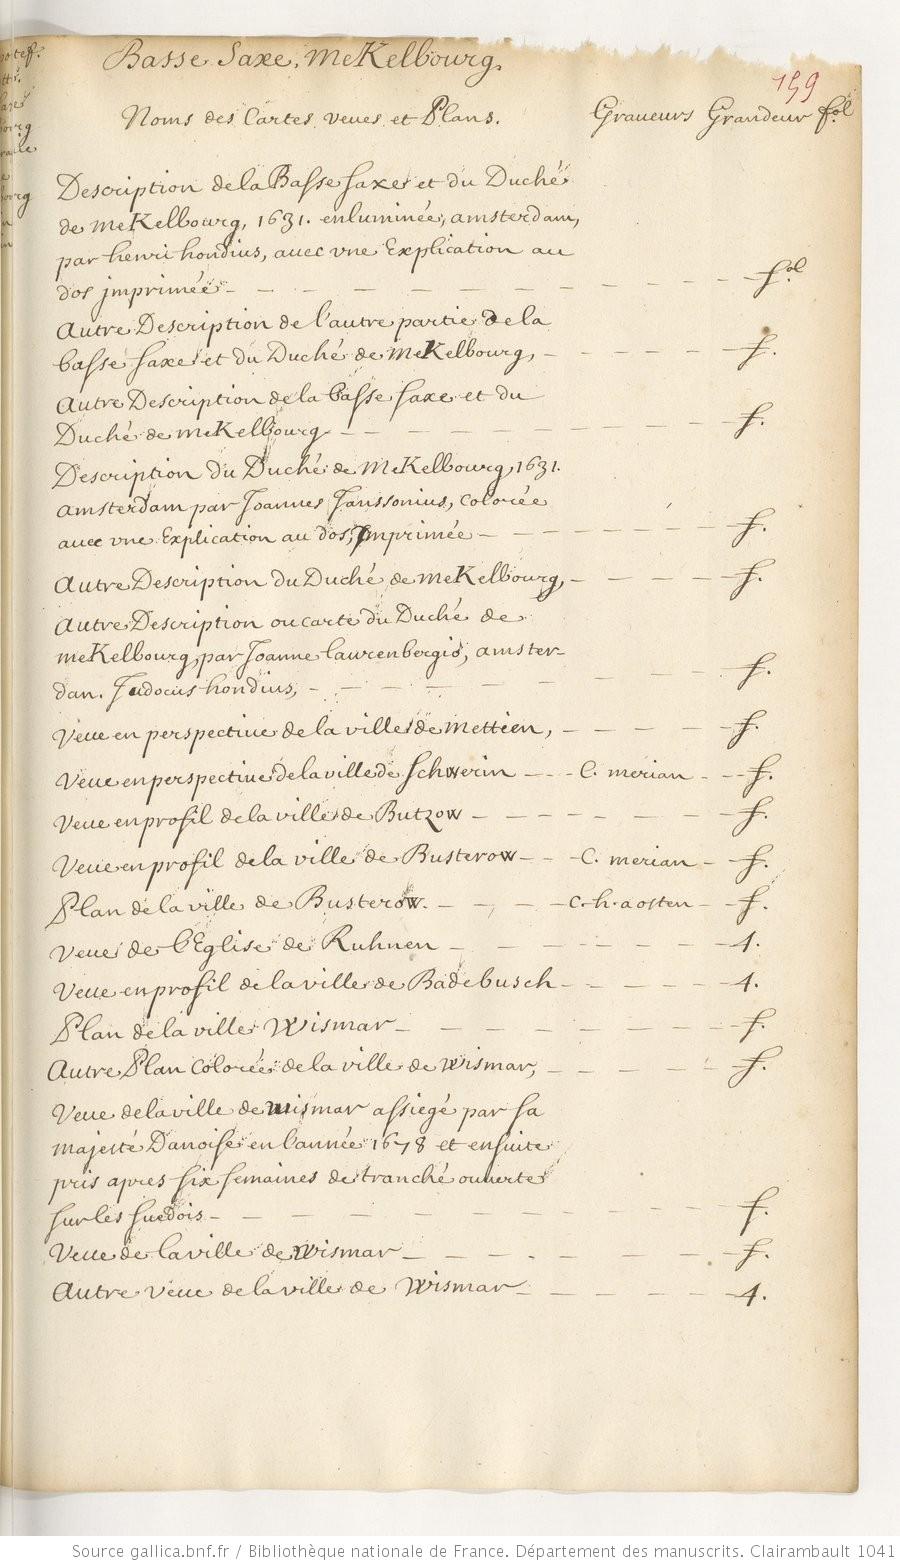 Basse Saxe, meKelbourg.
159
Noms des Cartes, veues et Plans. Graueurs Grandeur fol
Description de la Basse saxe et du Duché
de meKelbourg, 1631. enluminée, amsterdam,
par henri hondius, auec vne Explication au
dos jmprimée - fol.
Autre Description de l'autre partie de la
basse saxe et du Duché de meKelbourg, - f.
Autre Description de la basse saxe et du
Duché de meKelbourg - f.
Description du Duché de meKelbourg, 1631.
amsterdam par Joannes Janssonius, colorée
auec vne Explication au dos, Jmprimée - f.
Autre Description du Duché de meKelbourg, - f.
Autre Description ou carte du Duché de
meKelbourg, par Joanne laurenbergio, amster-
dan. Judocus hondius, - f.
Veue en perspectiue de la ville de mettien, - f.
Veue en perspectiue de la ville de schwerin - C. merian - f.
Veue en profil de la ville de Butzow - f.
Veue en profil de la ville de Busterow - C. merian - f.
Plan de la ville de Busterow. - C. h. aosten - f.
Veue de l'Eglise de Ruhnen - 4.
Veue en profil de la ville de Badebusch - 4.
Plan de la ville Wismar - f.
Autre Plan Colorée de la ville de wismar, - f.
Veue de la ville de wismar assiegé par sa
majesté Danoise en l'année 1678 et ensuite
pris apres six semaines de tranché ouuerte
sur les suedois - f.
Veue de la ville de wismar - f.
Autre veue de la ville de Wismar - 4.
Source gallica.bnf.fr / Bibliothèque nationale de France. Département des manuscrits. Clairambault 1041